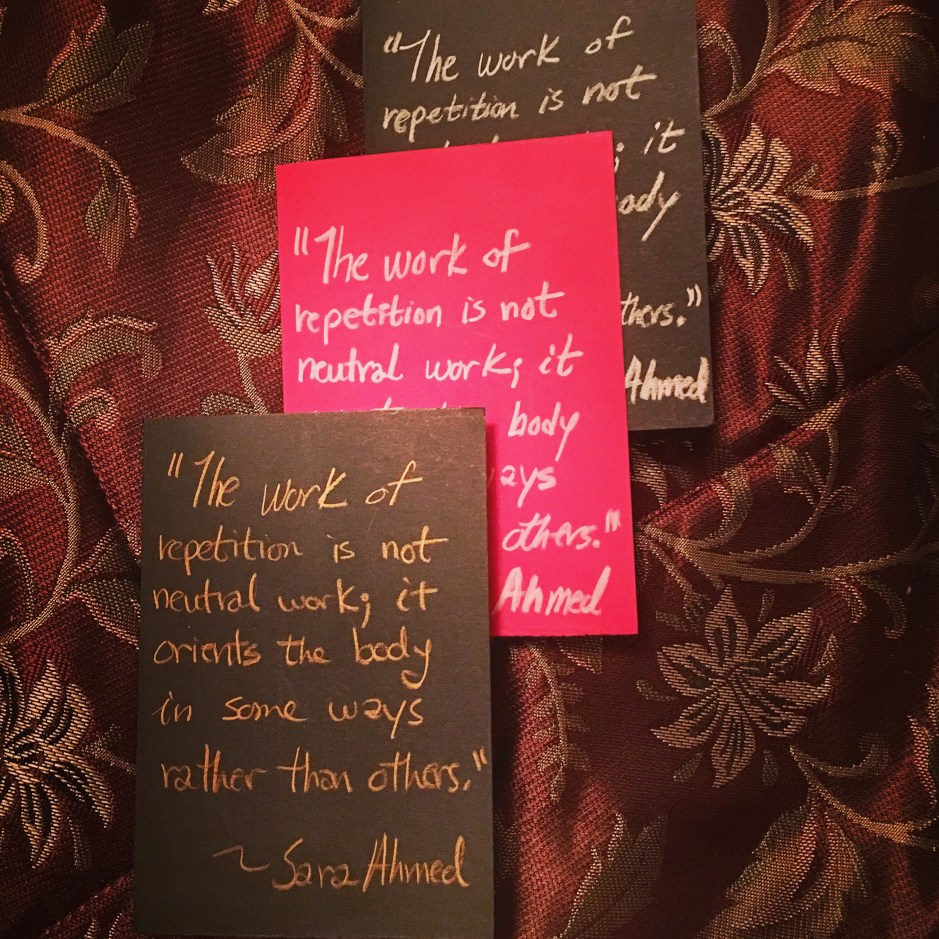 "The work of
repetition is not
; it
ody
thers."
Ahmed
"The work of
repetition is not
neutral work; it
body
ays
others."
Ahmed
"The work of
repetition is not
neutral work; it
orients the body
in some ways
rather than others."
~ Sara Ahmed